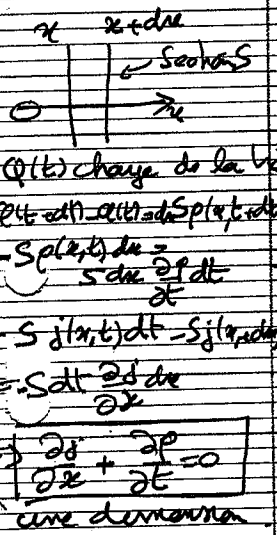 x x+dx
Section S
x
Q(t) charge de la
Q(t+dt)-Q(t)=dx Sρ(x,t+dt
-Sρ(x,t)dx =
S dx ∂ρ/∂t dt
- S j(x,t)dt - Sj(x+dx
=-Sdt ∂j/∂x dx
⇒ ∂j/∂x + ∂ρ/∂t = 0
une dimension